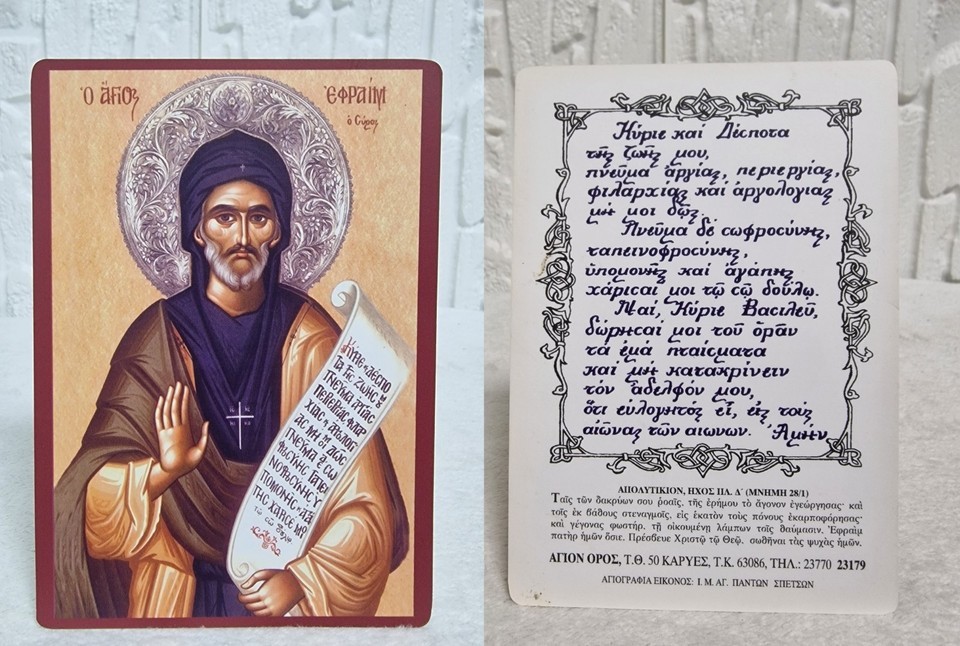 Ὁ ἍΓΙΟΣ
ἘΦΡΑΊΜ
ὁ Σύρος
ΚΎΡΙΕ Κ ΔΈΣΠΟ
ΤΑ ΤΗΣ ΖΩΗΣ
ΠΝΕΥΜΑ ἈΡΓΊΑΣ
Κύριε καὶ Δέσποτα
τῆς ζωῆς μου,
πνεῦμα ἀργίας, περιεργίας,
φιλαρχίας καὶ ἀργολογίας
μή μοι δῷς.
Πνεῦμα δὲ σωφροσύνης,
ταπεινοφροσύνης,
ὑπομονῆς καὶ ἀγάπης
χάρισαί μοι τῷ σῷ δούλῳ.
Ναί, Κύριε Βασιλεῦ,
δώρησαί μοι τοῦ ὁρᾶν
τὰ ἐμὰ πταίσματα
καὶ μὴ κατακρίνειν
τὸν ἀδελφόν μου,
ὅτι εὐλογητὸς εἶ, εἰς τοὺς
αἰῶνας τῶν αιωνων. Ἀμήν
ΑΠΟΛΥΤΙΚΙΟΝ, ΗΧΟΣ ΠΛ. Δ΄ (ΜΝΗΜΗ 28/1)
Ταῖς τῶν δακρύων σου ῥοαῖς, τῆς ἐρήμου τὸ ἄγονον ἐγεώργησας· καὶ
τοῖς ἐκ βάθους στεναγμοῖς, εἰς ἑκατὸν τοὺς πόνους ἐκαρποφόρησας·
καὶ γέγονας φωστήρ, τῇ οἰκουμένῃ λάμπων τοῖς θαύμασιν. Ἐφραὶμ
πατὴρ ἡμῶν ὅσιε. Πρέσβευε Χριστῷ τῷ Θεῷ, σωθῆναι τὰς ψυχὰς ἡμῶν.
ΑΓΙΟΝ ΟΡΟΣ, Τ.Θ. 50 ΚΑΡΥΕΣ, Τ.Κ. 63086, ΤΗΛ.: 23770 23179
ΑΓΙΟΓΡΑΦΙΑ ΕΙΚΟΝΟΣ: Ι. Μ. ΑΓ. ΠΑΝΤΩΝ ΣΠΕΤΣΩΝ